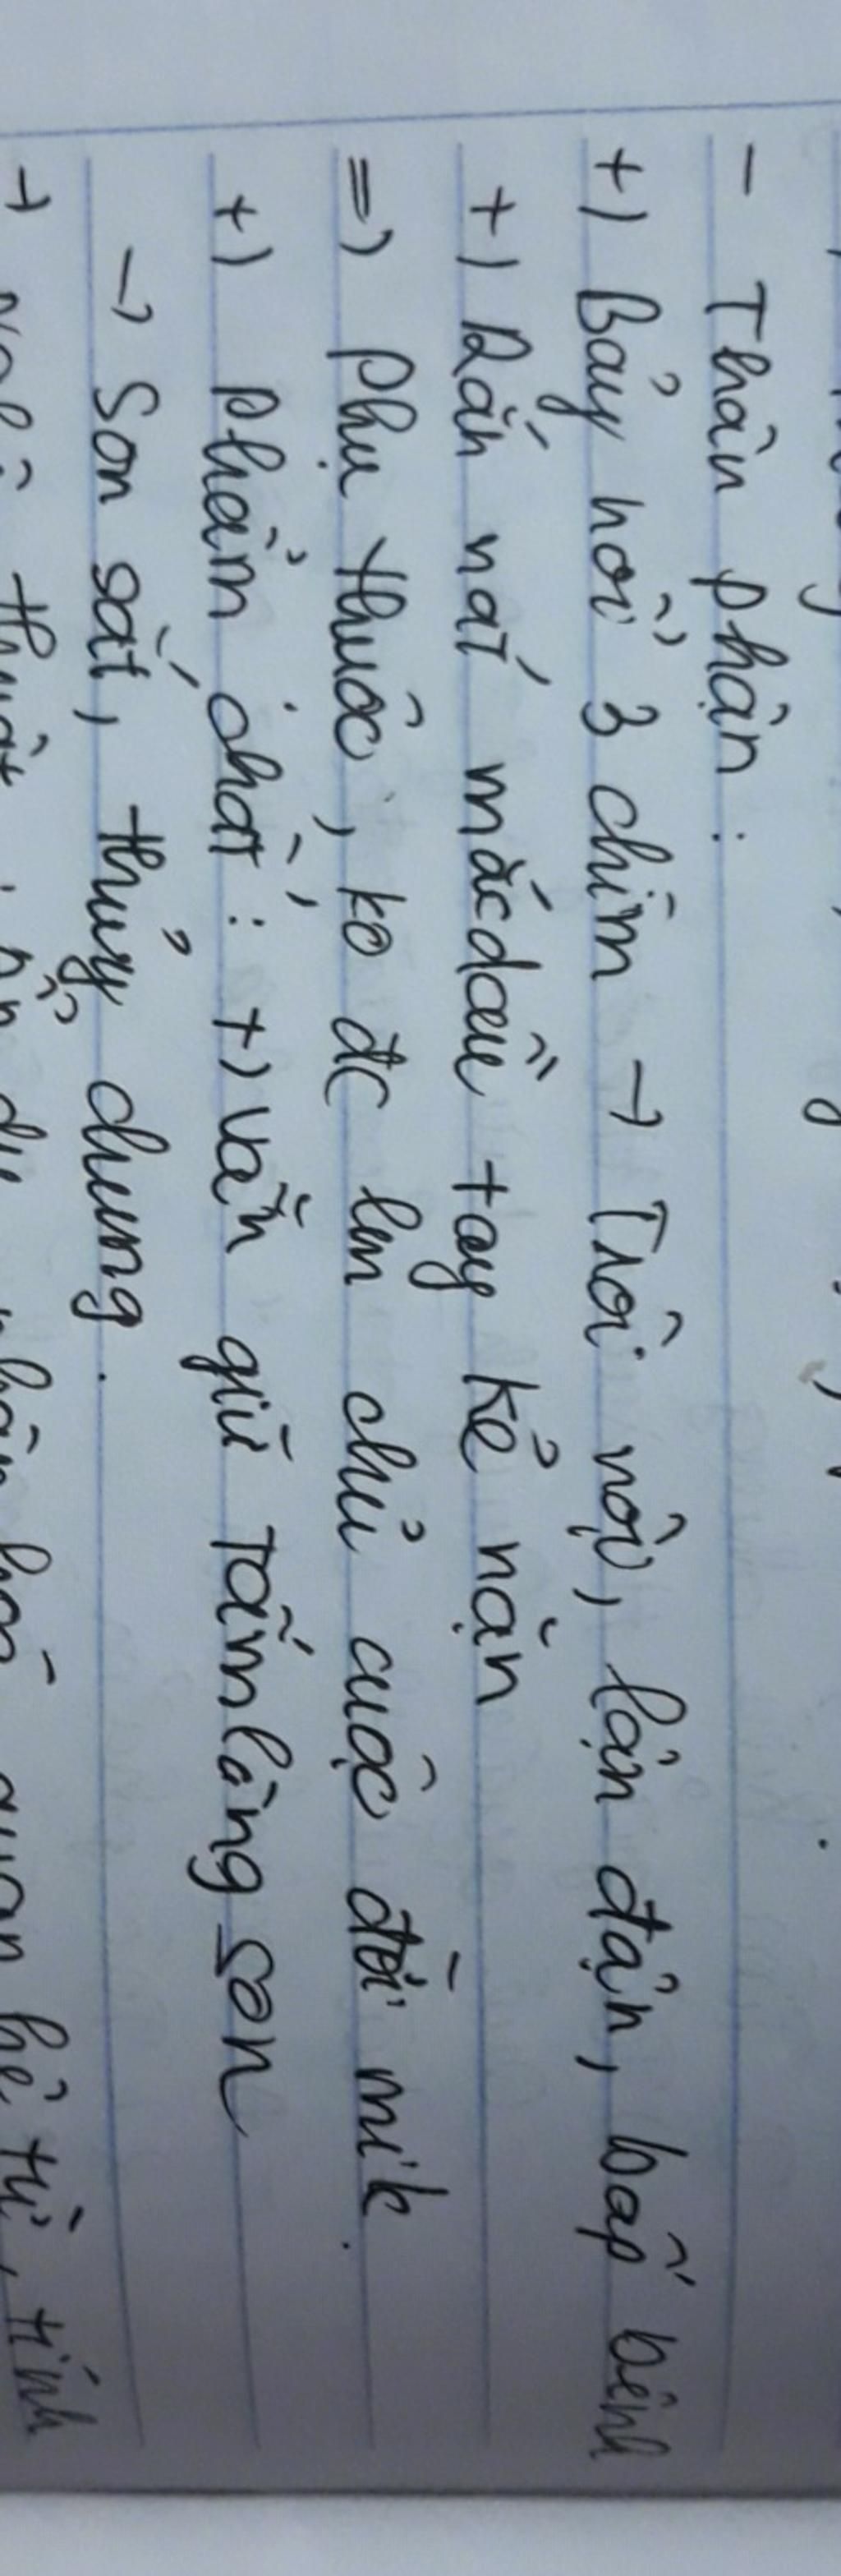 - Thân phận :
+) Bảy nổi 3 chìm → Trôi nổi, lận đận, bấp bênh
+) Rắn nát mặc dầu tay kẻ nặn
=) Phụ thuộc, ko đc lm chủ cuộc đời mik.
+) Phẩm chất : +) vẫn giữ tấm lòng son
→ Son sắt, thủy chung.